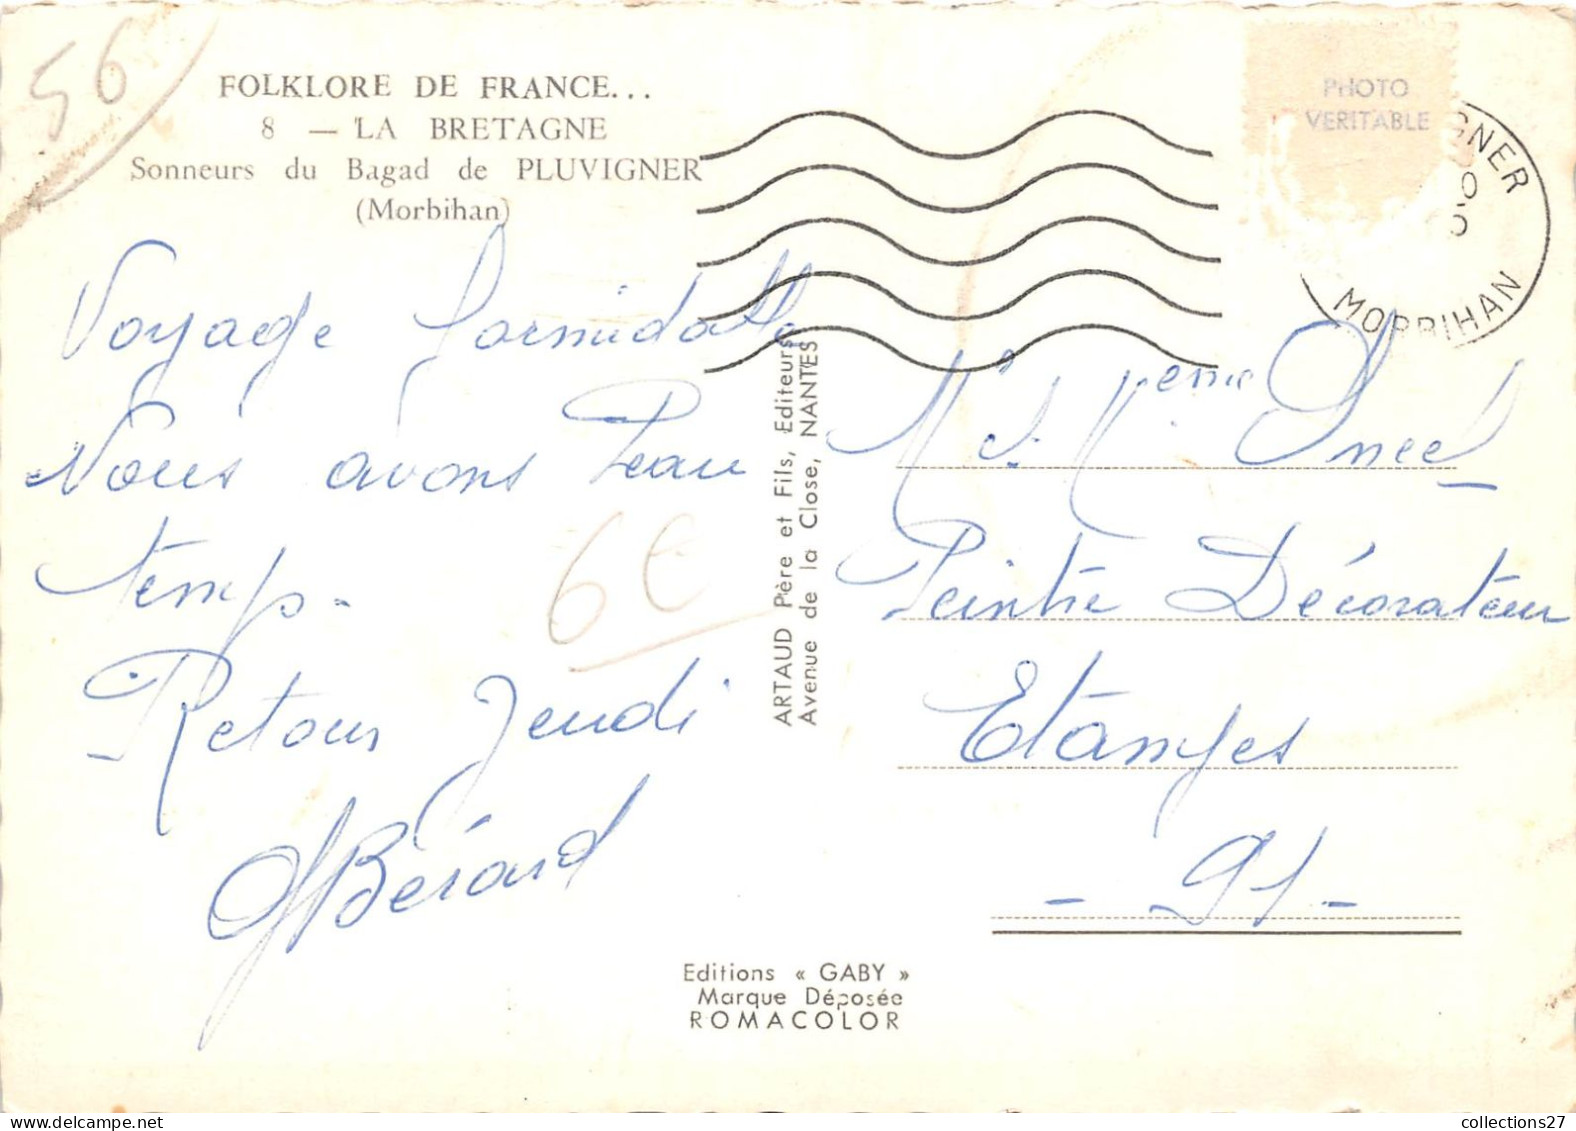 56
FOLKLORE DE FRANCE...
8 — LA BRETAGNE
Sonneurs du Bagad de PLUVIGNER
(Morbihan)
PHOTO
VERITABLE
GNER
MORBIHAN
Voyage formidable
Nous avons beau
temps.
Retour Jeudi
Bérard
6€
ARTAUD Père et Fils, Editeurs
Avenue de la Close, NANTES
Peintre Décorateur
Etampes
- 91 -
Editions « GABY »
Marque Déposée
ROMACOLOR
collections27